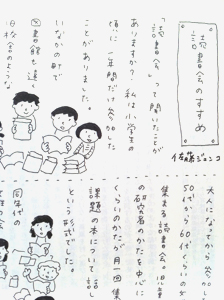 読書会のすすめ
佐藤ジュンコ
「読書会」って聞いたことが
ありますか？私は小学生の
頃に一年間だけ参加した
ことがありました。
いなかの町で
図書館も遠く
旧校舎のような
大人になってから参加
集まる読書会。
50代から60代
の研究者のかたを中心に
くらいのかたが月一回集
課題の本について話し
という形式でした。
同年代の